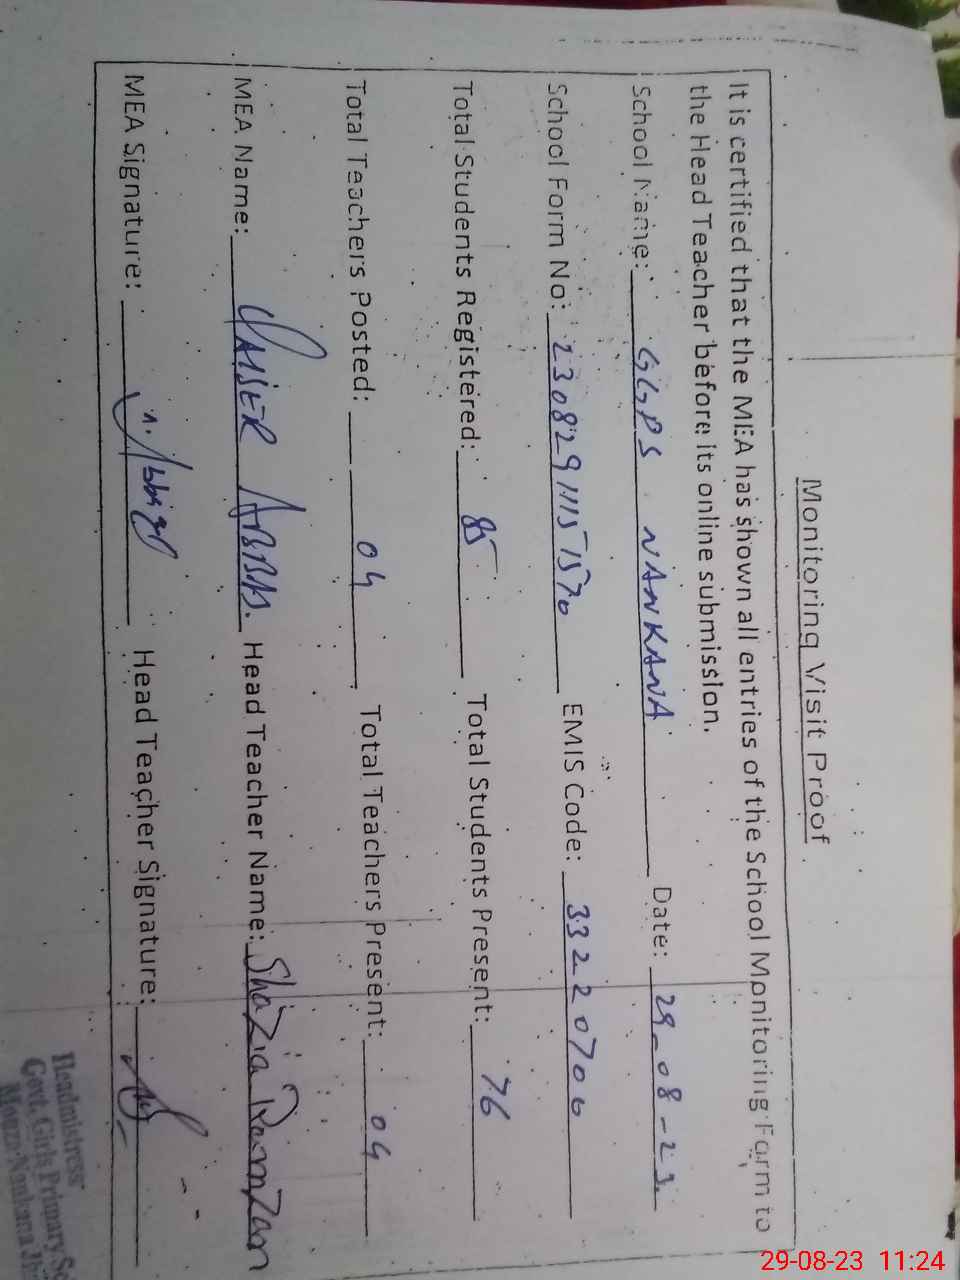 Monitoring Visit Proof
It is certified that the MEA has shown all entries of the School Monitoring Form to
the Head Teacher before its online submission.
School Name: GGPS NANKANA Date: 29-08-23.
School Form No: 230829111151570 EMIS Code: 33220700
Total Students Registered: 85 Total Students Present: 76
Total Teachers Posted: 04 Total Teachers Present: 04
MEA Name: QAISER ABBAS. Head Teacher Name: Shazia Ramzan
MEA Signature: Head Teacher Signature:
Headmistress
Govt. Girls Primary
Nankana
29-08-23 11:24